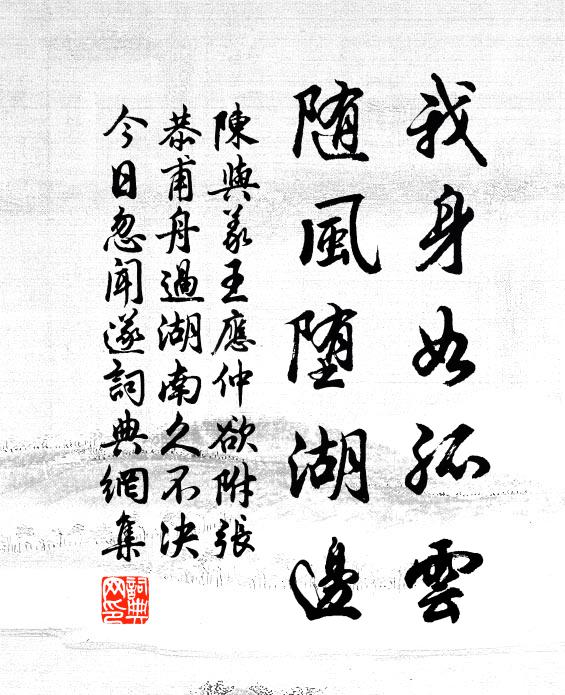 我身如孤雲
随風堕湖邊
陳與義王應仲欲附張
恭甫舟過湖南久不决
今日忽聞遂詞典網集
詞典
网印